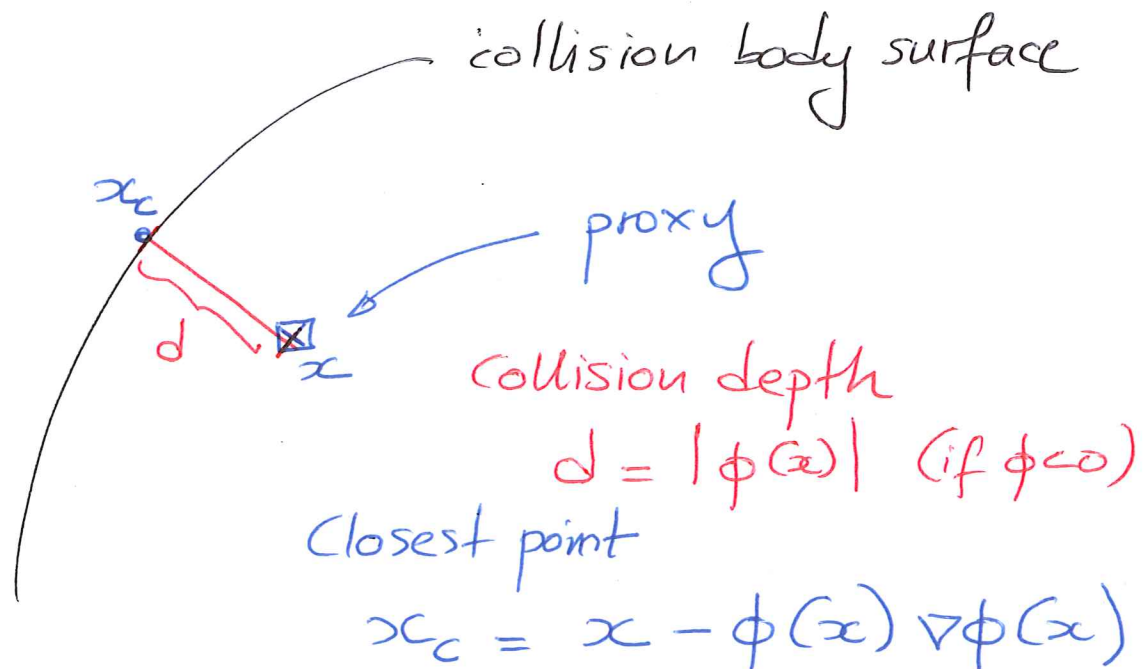 collision body surface
x_c
proxy
d
x
Collision depth
d = |ϕ(x)| (if ϕ<0)
Closest point
x_c = x - ϕ(x) ∇ϕ(x)